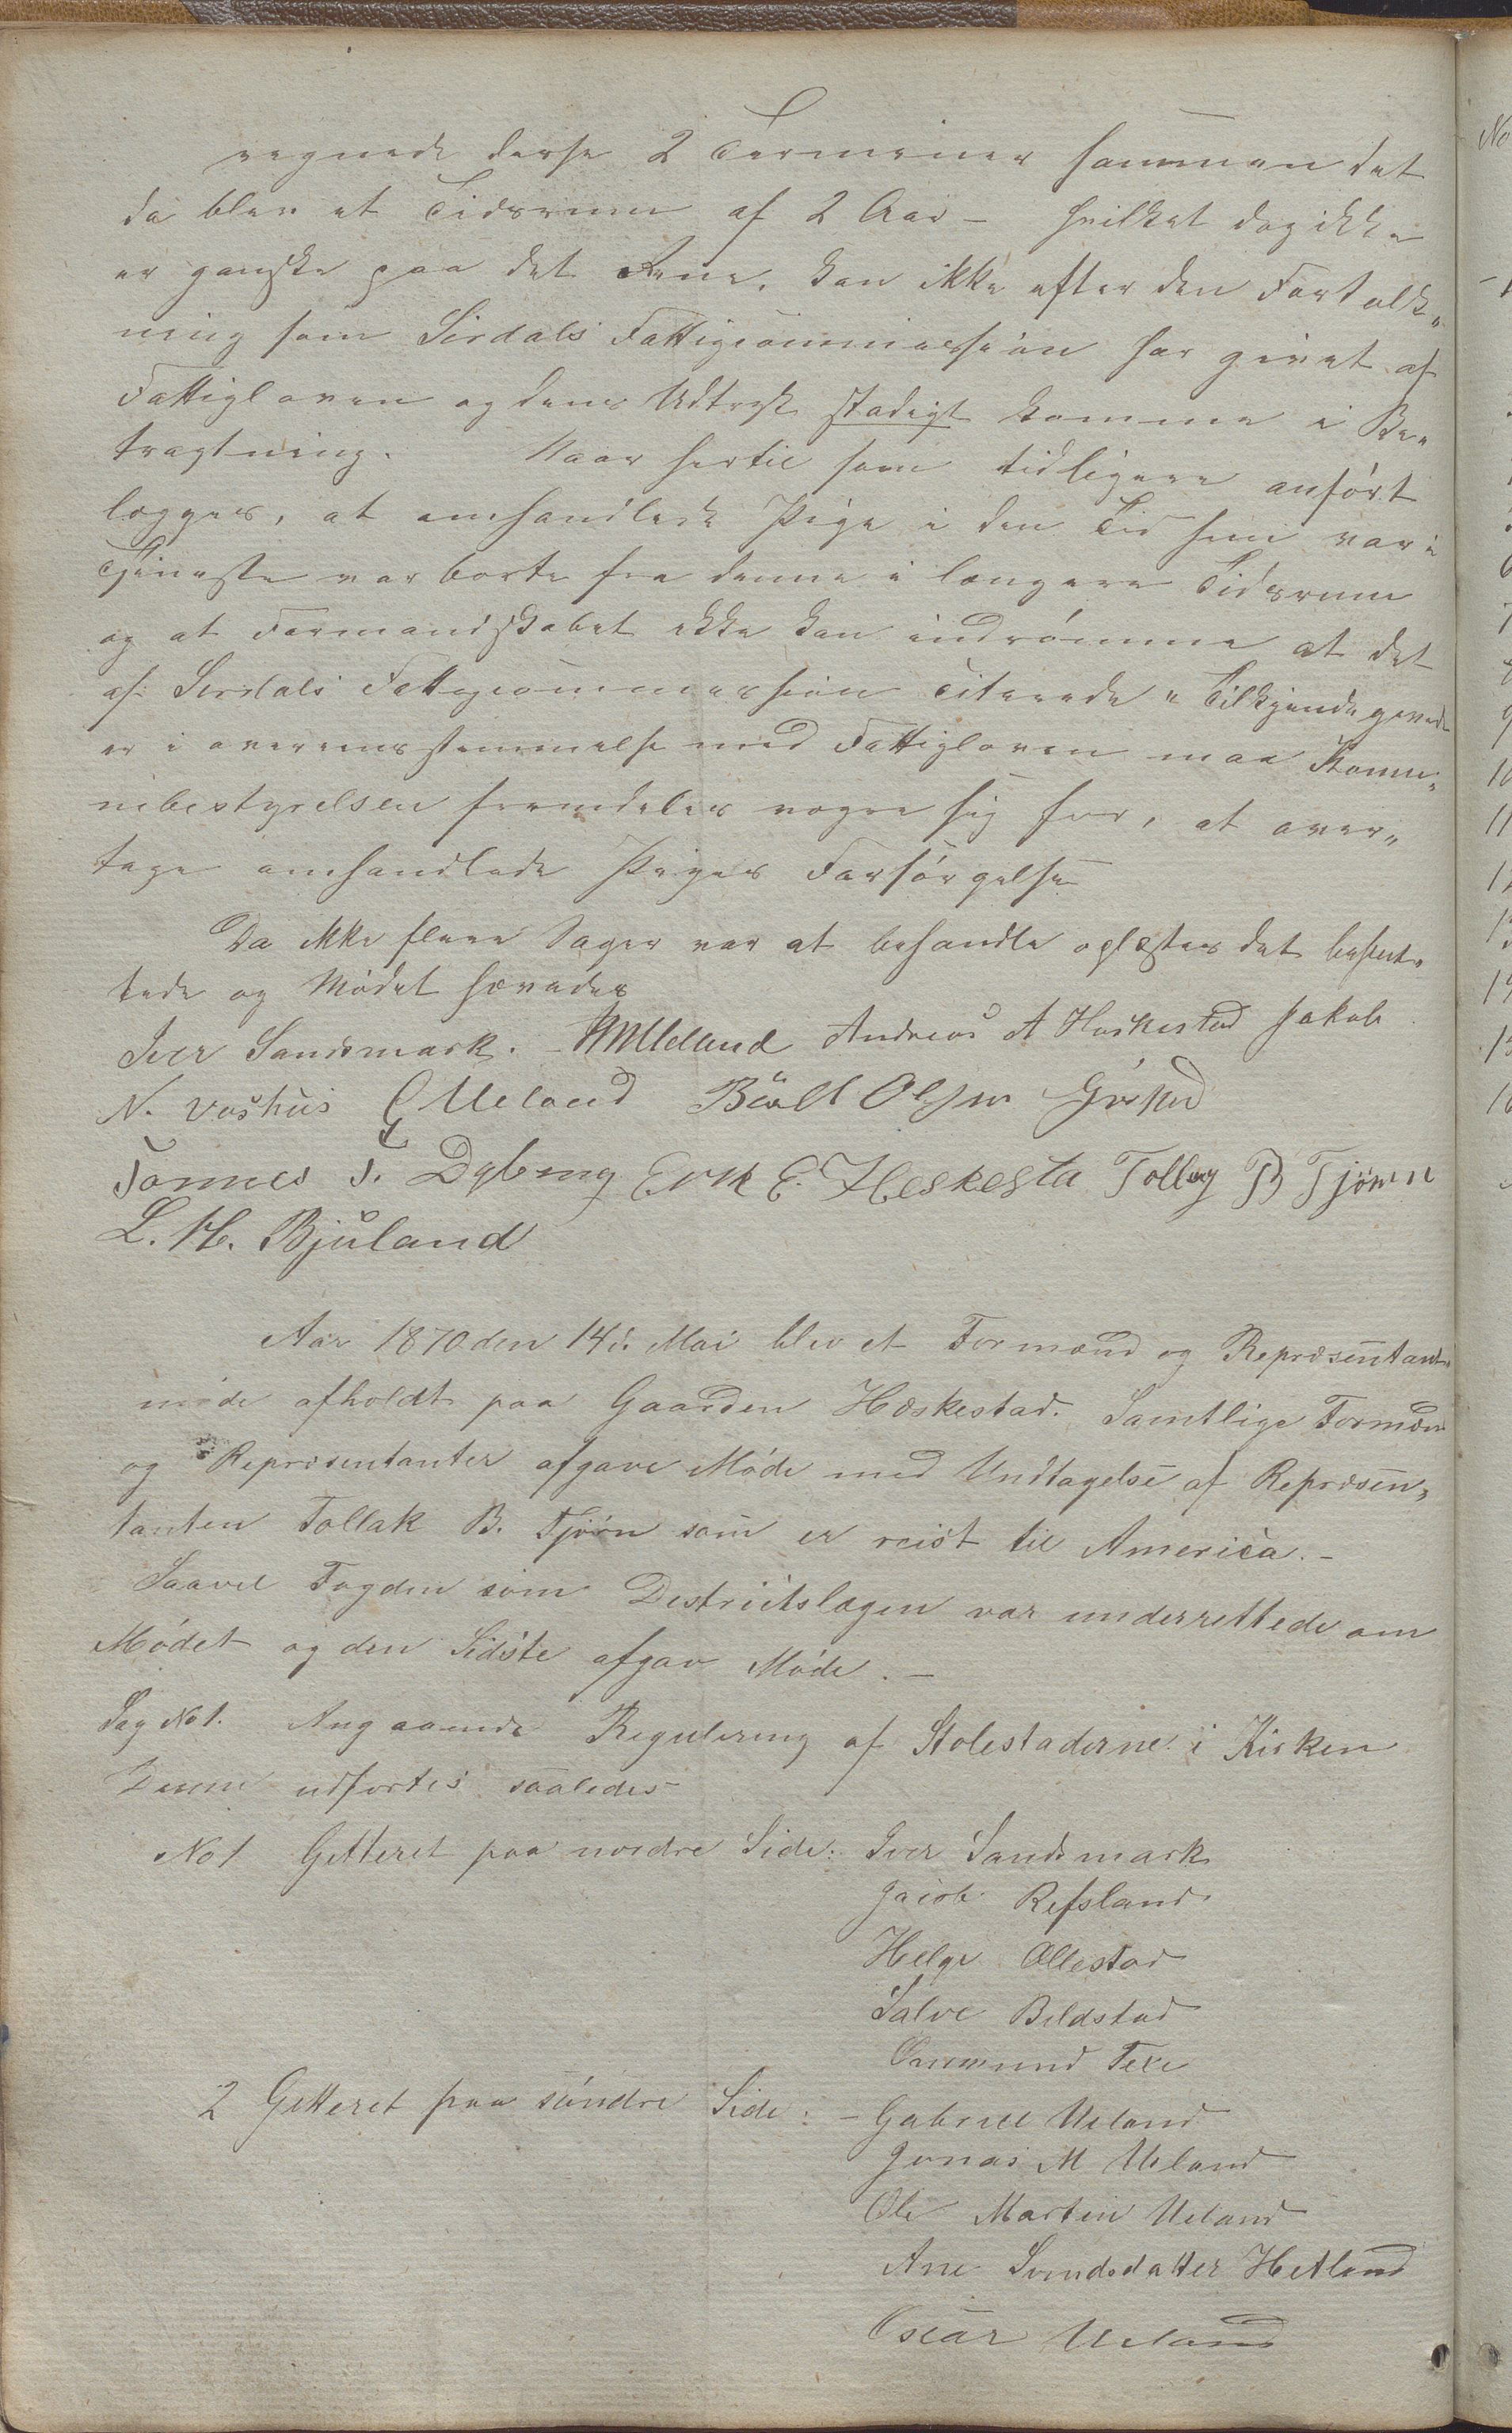 regnede desse 2 Terminer sammen det
da blev et Tidsrum af 2 Aar – hvilket dog ikke
er ganske paa det Rene, kan ikke efter den Fortolk„
ning som Sirdals Fattigcommission har givet af
Fattigloven og dens Udtryk stadigt komme i Be„
tragtning. Naar hertil som tidligere anført
lægges, at omhandlede Pige i den Tid hun var i
Tjeneste var borte fra denne i længere Tidsrum
og at Formandskabet ikke kan indrømme at det
af Sirdals Fattigcommission Citerede „Tilkjendegivende
er i overensstemmelse med Fattigloven maa Komu„
nebestyrelsen fremdeles vægre sig for, at over„
tage omhandlede Piges Forsørgelse
Da ikke flere Sager var at behandle oplæstes det beslut„
tede og Mødet hævedes
Iver Sandsmark. Andreas A Heskestad Jakob
N. Vashus G Ueland Olsen
Tønnes T. Dybing Erik E. Heskesta Tolleg B Tjørn
L. H. Bjuland
Aar 1870 den 14de Mai blev et Formænd og Repræsentant„
møde afholdt paa Gaarden Heskestad. Samtlige Formænd
og Repræsentanter afgave Møde med Undtagelse af Repræsen„
tanten Tollak B. Tjørn som er reist til America. –
Saavel Fogden som Districtslægen var underrettede om
Mødet og den Sidste afgav Møde. –
Sag No 1. Angaaende Regulering af Stolestaderne i Kirken
Denne udførtes saaledes
No 1 Gitteret paa nordre Side: Iver Sandsmark
Jacob Refsland
Helge Ollestad
Salve Bildstad
Ommund Fexe
2 Gitteret paa søndre Side: – Gabriel Ueland
Jonas M Ueland
Ole Martin Ueland
Ane Svendsdatter Hetland
Oscar Ueland